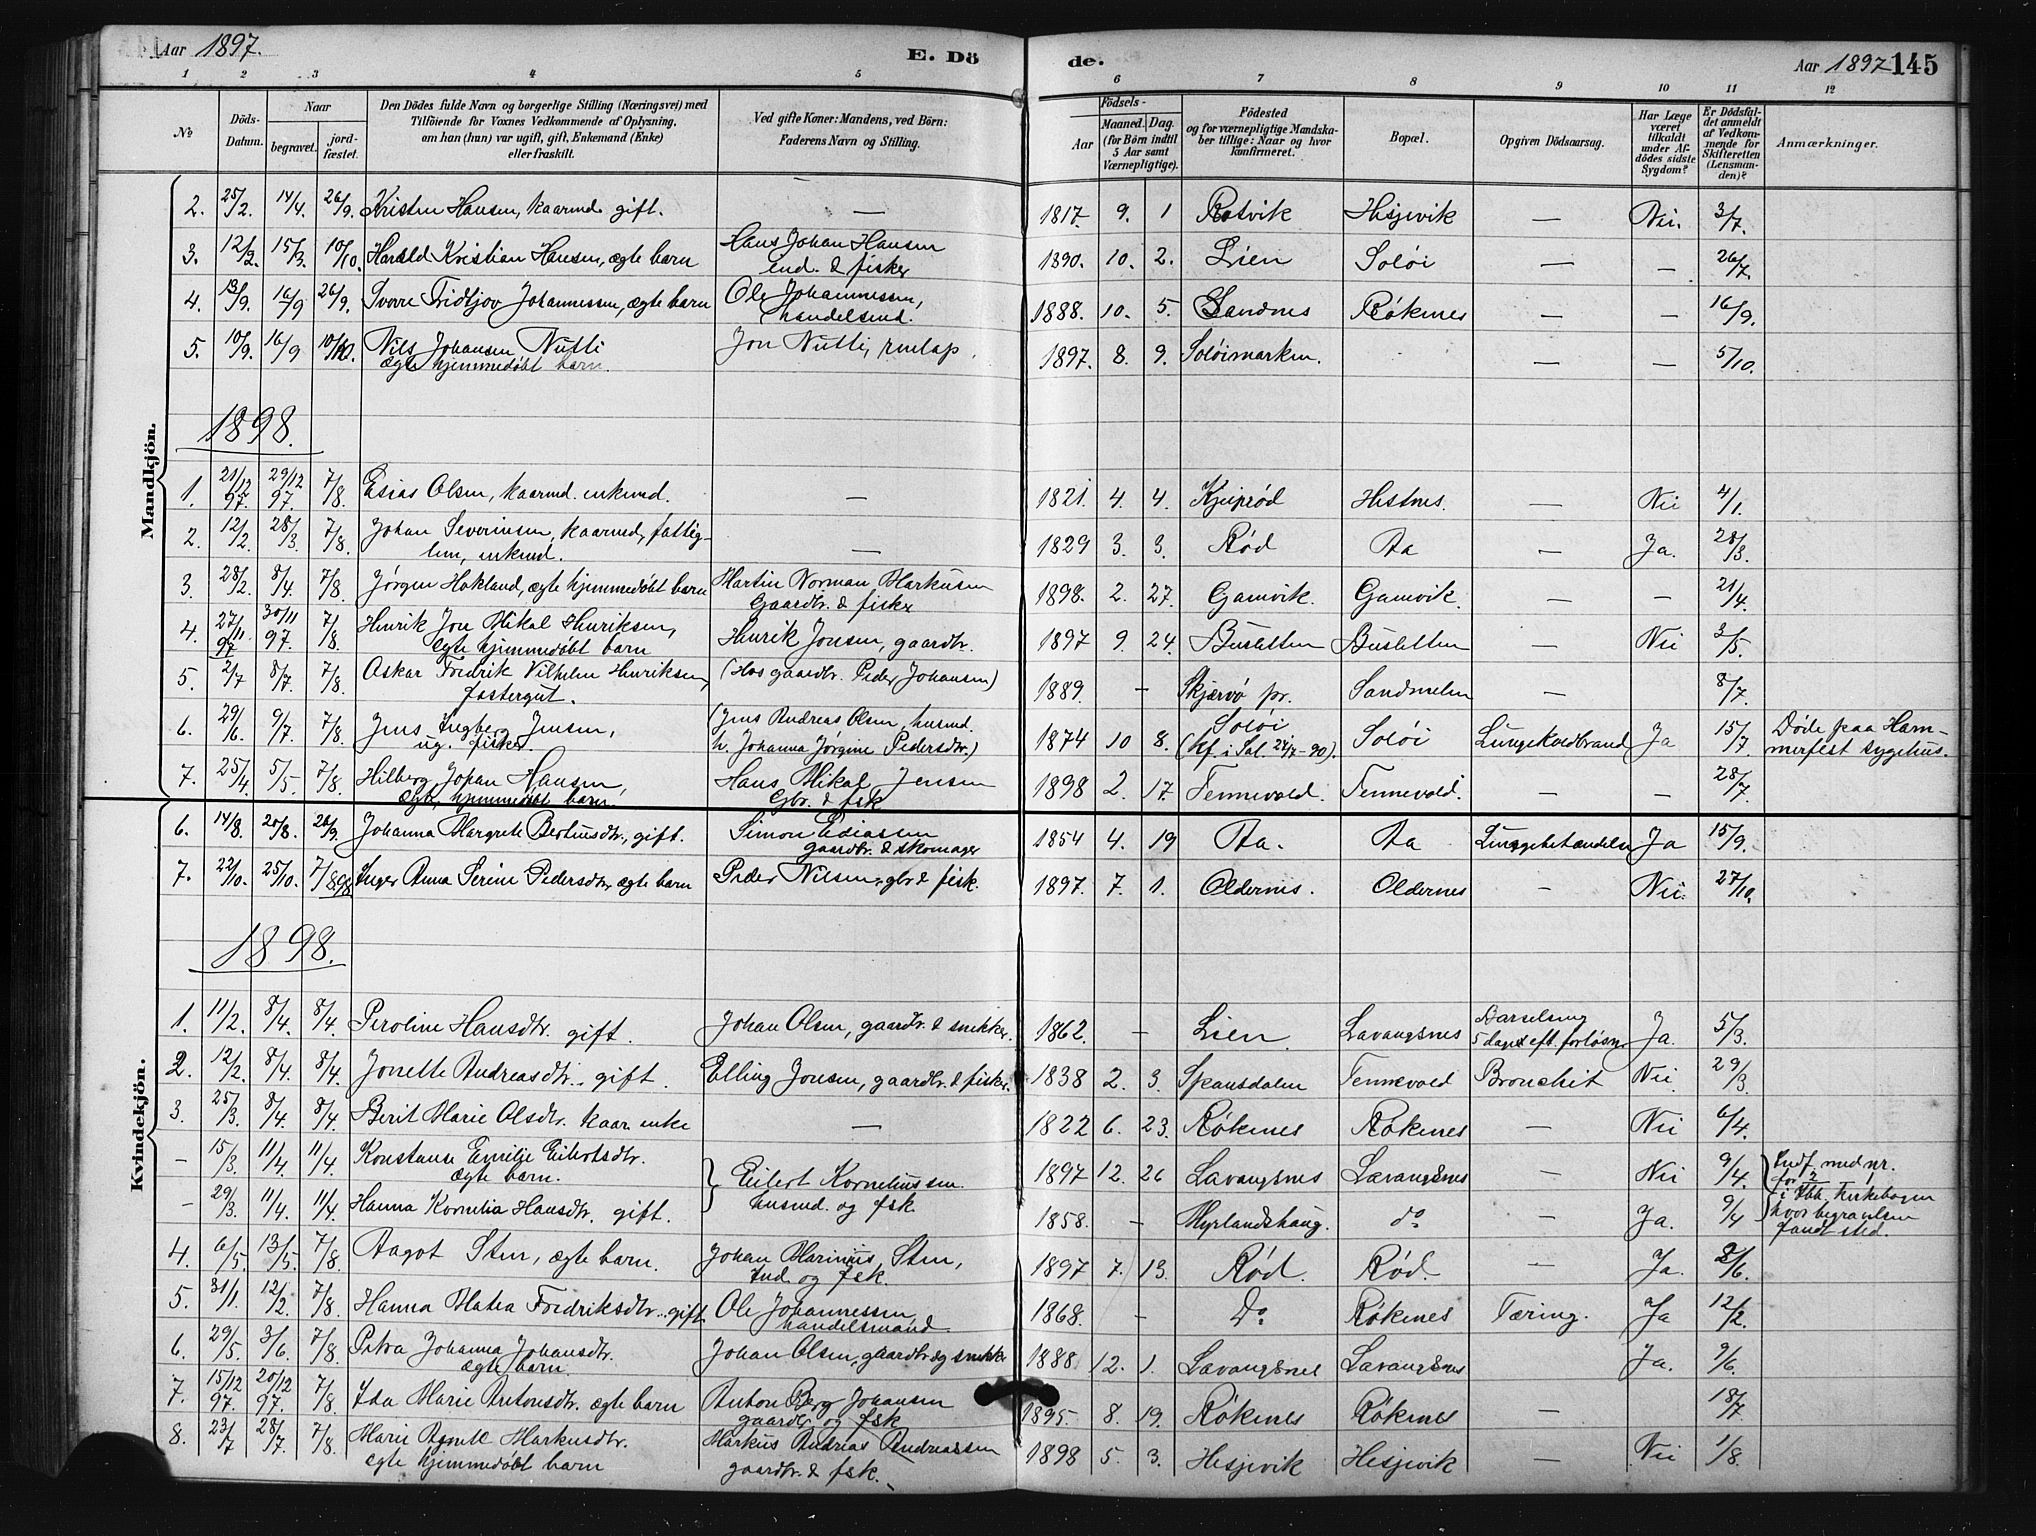 Aar 1897. E. Dö de. Aar 1897 145
1 2 3 4 5 6 7 8 9 10 11 12
No
Döds-Datum.
Naar
begravet.
jord-fæstet.
Den Dödes fulde Navn og borgerlige Stilling (Næringsvei) med
Tilföiende for Voxnes Vedkommende af Oplysning,
om han (hun) var ugift, gift, Enkemand (Enke)
eller fraskilt.
Ved gifte Koner: Mandens, ved Börn:
Faderens Navn og Stilling.
Födsels-
Aar
Maaned. Dag.
(for Börn indtil
5 Aar samt
Værnepligtige).
Födested
og for værnepligtige Mandska-
ber tillige: Naar og hvor
konfirmeret.
Bopæl.
Opgiven Dödsaarsag.
Har Læge
været
tilkaldt
under Af-
dödes sidste
Sygdom?
Er Dödsfal-
det anmeldt
af Vedkom-
mende for
Skifteretten
(Lensman-
den)?
Anmærkninger.
Mandkjön.
2. 25/2. 14/4. 26/9. Kristen Hansen, kaarmd. gift. — 1817 9. 1 Rotvik Hesjevik — Nei. 3/7.
3. 12/2. 15/3. 10/10. Harald Kristian Hansen, ægte barn Hans Johan Hansen 1890. 10. 2. Lien Soløi — — 26/7.
ind. & fisker
4. 13/9. 16/9 26/9. Sverre Fridtjov Johannessen, ægte barn Ole Johannessen, 1888. 10. 5. Sandnes Røkenes — — 16/9.
handelsmd.
5. 10/9. 16/9 10/10. Nils Johansen Nutti Jon Nutti, renlap. 1897. 8. 9. Soløimarken. — — 5/10.
ægte hjemmedøbt barn.
1898.
1. 21/12 97. 29/12 97. 7/8. Esias Olsen, kaarmd. enkemd. — 1821. 4. 4. Kjeiprød Hestnes. — Nei 4/1.
2. 12/2. 28/3. 7/8. Johan Severinsen, kaarmd, fattig-
lem, enkemd. — 1829 3. 3. Rød Aa — Ja. 28/3.
3. 28/2. 8/4. 7/8. Jørgen Hokland, ægte hjemmedøbt barn Martin Norman Markusen 1898. 2. 27. Gamvik. Gamvik. — — 21/4.
Gaardbr. & fisker
4. 27/11 97 30/11 97. 7/8. Henrik Jon Mikal Henriksen, Henrik Jonsen, gaardbr. 1897 9. 24. Busletten Busletten — Nei 3/5.
ægte hjemmedøbt barn
5. 2/7 8/7. 7/8. Oskar Fredrik Vilhelm Henriksen, (Hos gaardbr. Peder Johansen) 1889. — Skjærvø pr. Sandmelen — 8/7.
fostergut.
6. 29/6. 9/7. 7/8. Jens Ingberg Jensen, (Jens Andreas Olsen, husmd. 1874 10 8. Soløi Soløi Lungekoldbrand Ja 15/7. Døde paa Ham-
ug. fisker. h. Johanna Jørgine Pedersdtr.) (kf. i Sal. 27/7-90). merfest sygehus.
7. 25/4. 5/5. 7/8. Hilberg Johan Hansen, Hans Mikal Jensen 1898 2. 17. Tennevold. Tennevold. — — 28/7.
ægte, hjemmedøbt barn Gbr. & fsk
Kvindekjön.
6. 14/8. 20/8. 26/9. Johanna Margrete Bertheusdtr., gift. Simon Ediassen 1854 4. 19 Aa. Aa Lungebetændelse Ja 15/9.
gaardbr. & skomager
7. 22/10. 25/10. 7/8 98 Inger Anna Serine Pedersdtr, ægte barn Peder Nilsen, gbr & fisk. 1897. 7. 1. Oldernes. Oldernes — Nei. 27/10.
1898.
1. 11/2. 8/4. 8/4. Peroline Hansdtr. gift. Johan Olsen, gaardbr. & snekker. 1862. — Lien. Lavangsnes Barselseng
5 dage eft. forløsn. Ja. 5/3.
2. 12/2. 8/4. 8/4. Jonette Andreasdtr. gift. Elling Jonsen, gaardbr. & fisker. 1838 2. 3. Spansdalen Tennevold Bronchit Nei. 29/3.
3. 25/3. 8/4. 8/4. Berit Marie Olsdtr. kaar enke — 1822 6. 23. Røkenes Røkenes — Nei 6/4.
— 15/3. 11/4. 11/4. Konstanse Emilie Eilertsdtr. Eilert Korneliussen. 1897 12. 26 Lavangsnes Lavangsnes — Nei 9/4. Indf. med nr.
ægte barn. husmd. og fsk. for
— 29/3. 11/4. 11/4. Hanna Kornelia Hansdtr. gift. 1858. — Myrlandshaug. do — Ja. 9/4 i Ibb. kirkebogen
hvor begravelsen
fandt sted.
4. 6/5. 13/5. 7/8. Aagot Sten, ægte barn. Johan Marinius Sten, 1897 7. 13. Rød. Rød. — Ja. 2/6.
Ind. og fsk.
5. 31/1. 12/2. 7/8. Hanna Matea Fredriksdtr. gift Ole Johannessen 1868. — Do Røkenes Tæring. Ja 12/2.
handelsmand.
6. 29/5. 3/6. 7/8. Petra Johanna Johansdtr. Johan Olsen, gaardbr og snekker 1888. 12. 1. Lavangsnes Lavangsnes Ja. 9/6.
ægte barn.
7. 15/12 97. 20/12 97. 7/8. Ida Marie Antonsdtr. ægte barn Anton Berg Johansen 1895. 8. 19. Røkenes Røkenes — 18/7
gaardbr og fsk
8. 23/7 28/7. 7/8. Marie Markusdtr. Markus Andreas Andreassen 1898 5. 3. Hesjevik Hesjevik — Nei 1/8.
ægte hjemmedøbt barn gaardbr. & fsk.